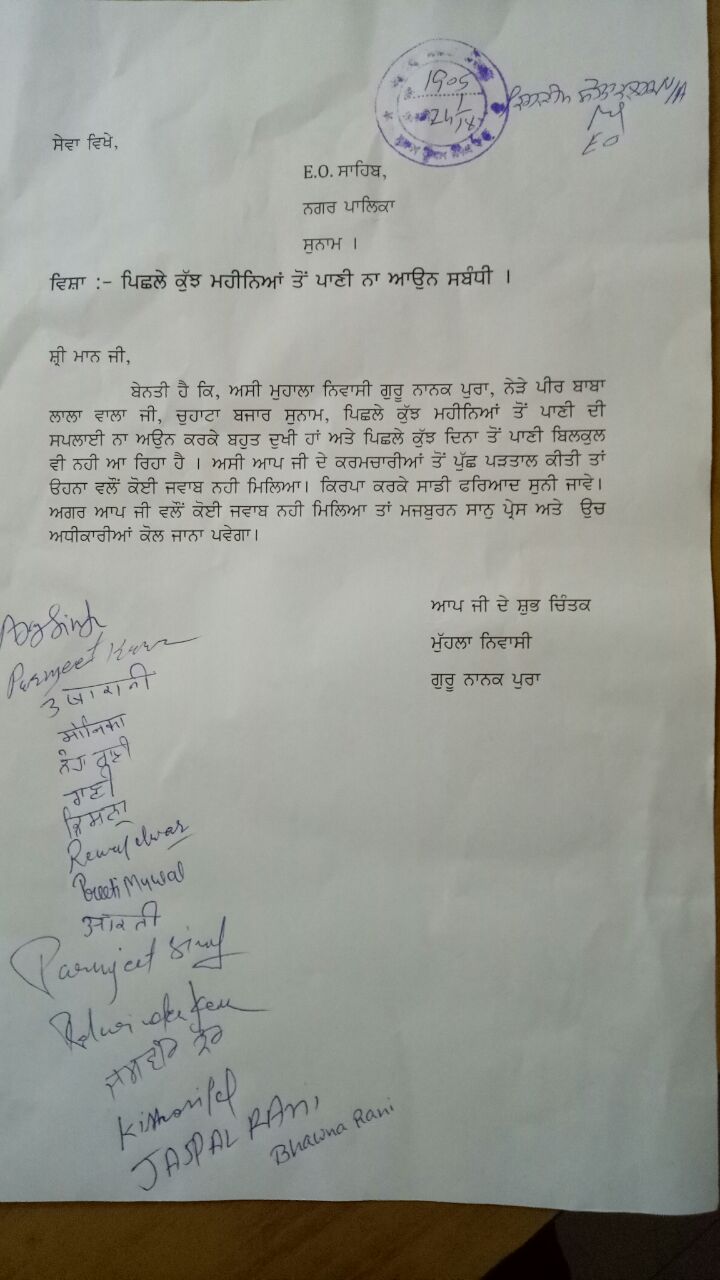 1905
24/1/18
N/A
EO
ਸੇਵਾ ਵਿਖੇ,
E.O. ਸਾਹਿਬ,
ਨਗਰ ਪਾਲਿਕਾ
ਸੁਨਾਮ ।
ਵਿਸ਼ਾ :- ਪਿਛਲੇ ਕੁੱਝ ਮਹੀਨਿਆਂ ਤੋਂ ਪਾਣੀ ਨਾ ਆਉਨ ਸਬੰਧੀ ।
ਸ਼੍ਰੀ ਮਾਨ ਜੀ,
ਬੇਨਤੀ ਹੈ ਕਿ, ਅਸੀ ਮੁਹਾਲਾ ਨਿਵਾਸੀ ਗੁਰੂ ਨਾਨਕ ਪੁਰਾ, ਨੇੜੇ ਪੀਰ ਬਾਬਾ
ਲਾਲਾ ਵਾਲਾ ਜੀ, ਚੁਹਾਟਾ ਬਜਾਰ ਸੁਨਾਮ, ਪਿਛਲੇ ਕੁੱਝ ਮਹੀਨਿਆਂ ਤੋਂ ਪਾਣੀ ਦੀ
ਸਪਲਾਈ ਨਾ ਅਉਨ ਕਰਕੇ ਬਹੁਤ ਦੁਖੀ ਹਾਂ ਅਤੇ ਪਿਛਲੇ ਕੁੱਝ ਦਿਨਾ ਤੋਂ ਪਾਣੀ ਬਿਲਕੁਲ
ਵੀ ਨਹੀ ਆ ਰਿਹਾ ਹੈ । ਅਸੀ ਆਪ ਜੀ ਦੇ ਕਰਮਚਾਰੀਆਂ ਤੋਂ ਪੁੱਛ ਪੜਤਾਲ ਕੀਤੀ ਤਾਂ
ਓਹਨਾ ਵਲੌਂ ਕੋਈ ਜਵਾਬ ਨਹੀ ਮਿਲਿਆ। ਕਿਰਪਾ ਕਰਕੇ ਸਾਡੀ ਫਰਿਆਦ ਸੁਨੀ ਜਾਵੇ।
ਅਗਰ ਆਪ ਜੀ ਵਲੌਂ ਕੋਈ ਜਵਾਬ ਨਹੀ ਮਿਲਿਆ ਤਾਂ ਮਜਬੁਰਨ ਸਾਨੁ ਪ੍ਰੇਸ ਅਤੇ ਉਚ
ਅਧੀਕਾਰੀਆਂ ਕੋਲ ਜਾਨਾ ਪਵੇਗਾ।
ਆਪ ਜੀ ਦੇ ਸ਼ੁਭ ਚਿੰਤਕ
ਮੁੱਹਲਾ ਨਿਵਾਸੀ
ਗੁਰੂ ਨਾਨਕ ਪੁਰਾ
Singh
Parmjeet Kaur
उषा रानी
ਮੋਨਿਕਾ
ਨੇਹਾ ਰਾਣੀ
ਰਾਣੀ
Preeti
आरती
Parmjeet Singh
ਜਸਵੀਰ ਕੌਰ
JASPAL RANI
Bhawna Rani